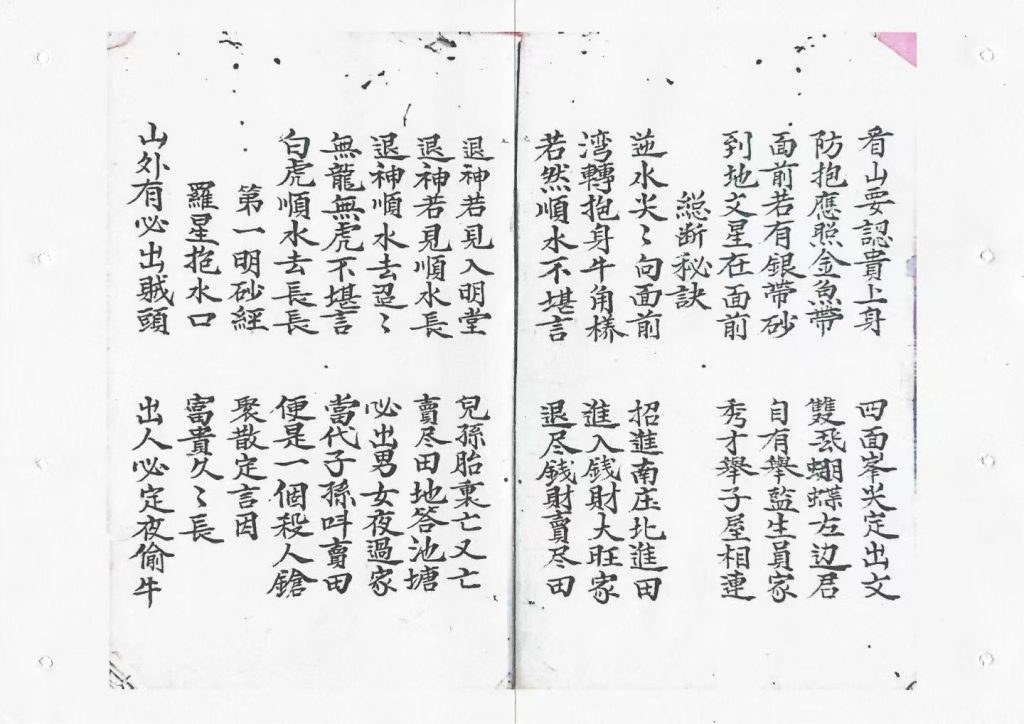 看山要認貴上身 四面峯尖定出文
防抱應照金魚帶 雙飛蝴蝶左边居
面前若有銀帶砂 自有舉監生員家
到地文星在面前 秀才舉子屋相連
総断秘訣
逆水尖〻向面前 招進南庄北進田
湾轉抱身牛角樣 進入錢財大旺家
若然順水不堪言 退尽錢財賣尽田
退神若見入明堂 兒孫胎裏亡又亡
退神若見順水長 賣尽田地答池塘
退神順水去迢〻 必出男女夜過家
無龍無虎不堪言 當代子孫呌賣田
白虎順水去長長 便是一個殺人鎗
第一明砂經 聚散定言因
羅星抱水口 富貴久〻長
山外有必出賊頭 出人必定夜偷牛